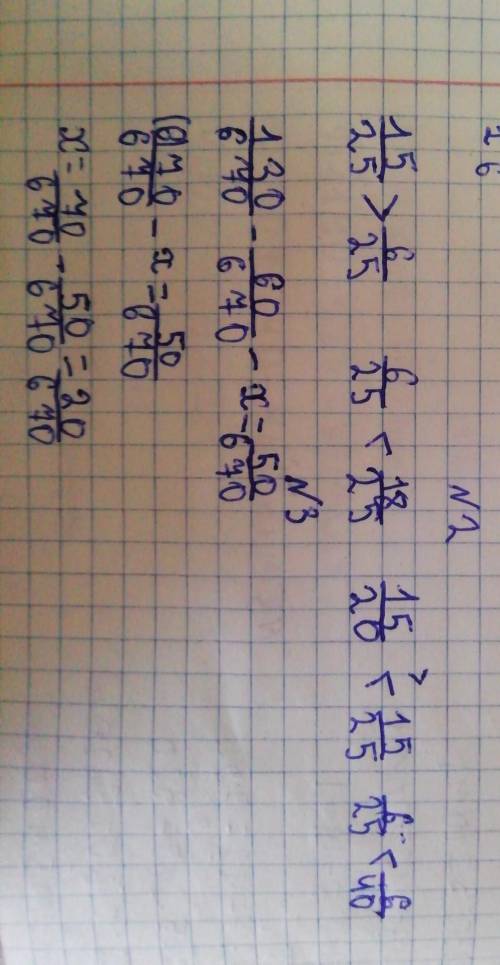 26
N2
15/25 > 6/25   6/25 < 18/25   15/20 < > 15/25   6/25 < 6/40
N3
130/670 - 60/670 - x = 50/670
70/670 - x = 50/670
x = 70/670 - 50/670 = 20/670